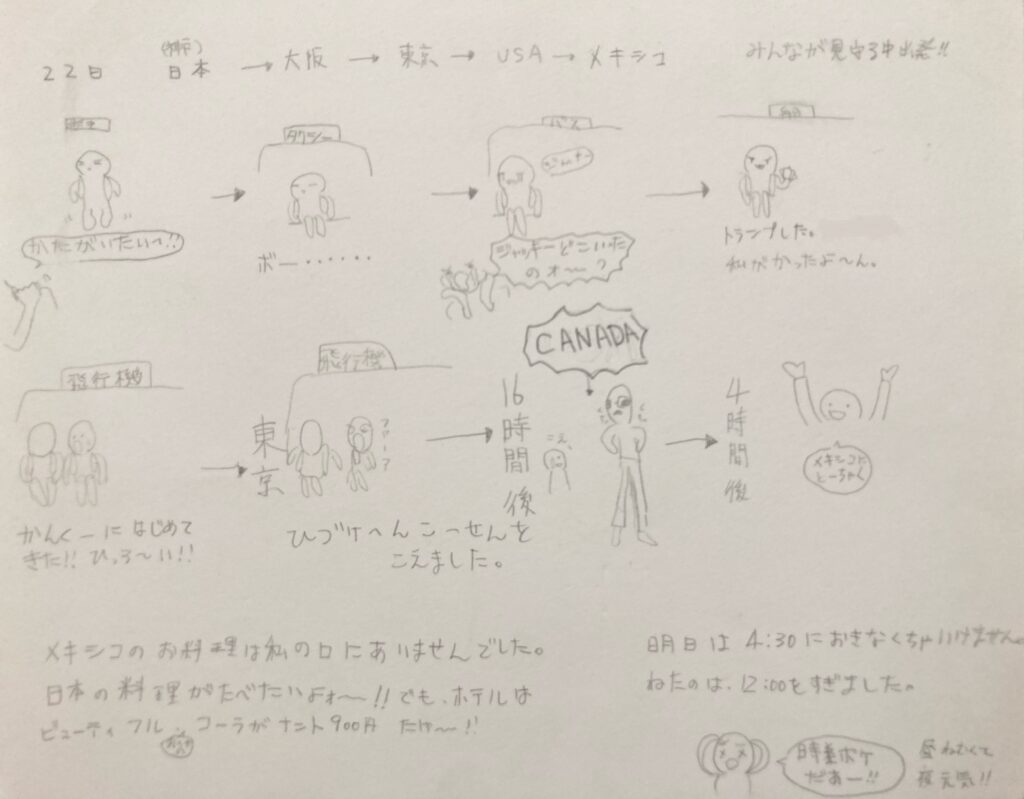 22日 日本 → 大阪 → 東京 → USA → メキシコ みんなが見守る中出発!!
タクシー
バス
かたがいたいっ!!
ボー・・・・・・
ジャッキーどこいた
のォ〜?
トランプした。
私がかったよ〜ん。
CANADA
飛行機
飛行機
東京
ファーア
16時間後
こえ、
4時間後
メキシコに
とーちゃく
かんくーにはじめて
きた!! ひっろ〜い!!
ひづけへんこーせんを
こえました。
メキシコのお料理は私の口にあいませんでした。
日本の料理がたべたいよォ〜!! でも、ホテルは
ビューティフル コーラがナント900円 たけ〜!!
明日は 4:30におきなくちゃいけません。
ねたのは、12:00をすぎました。
時差ボケ
だぁー!!
昼ねむくて
夜元気!!